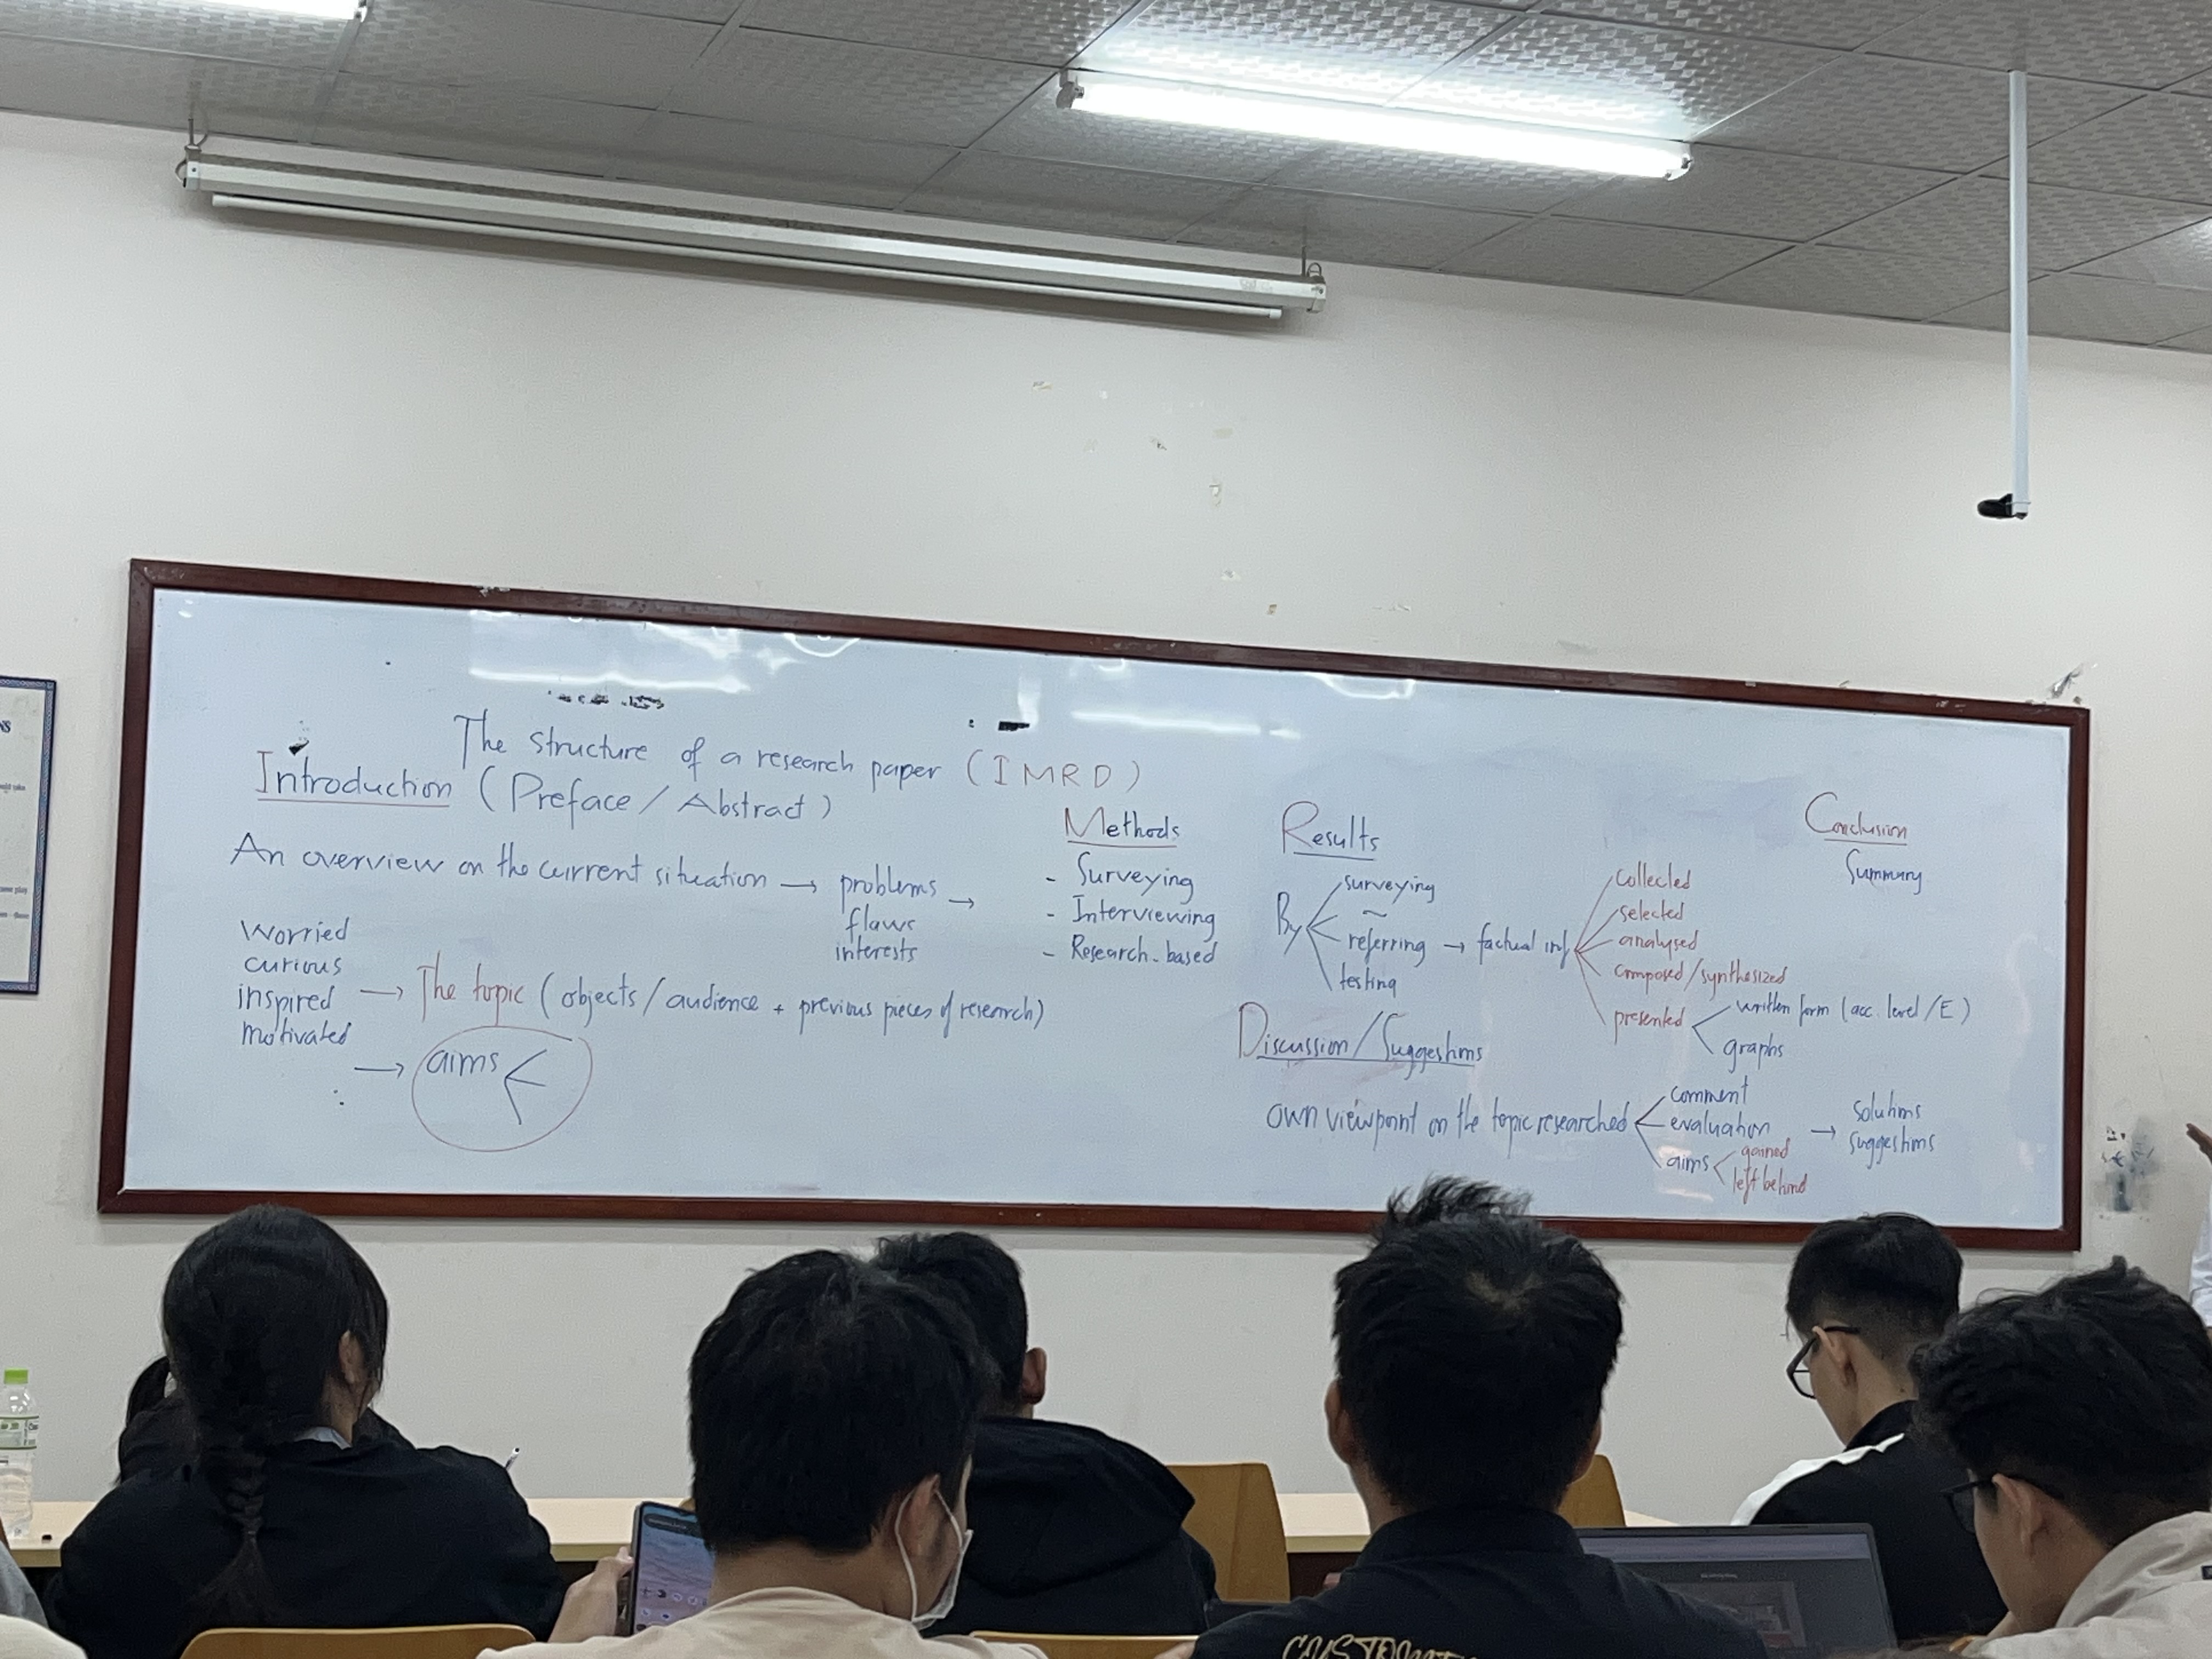 The structure of a research paper (IMRD)
Introduction (Preface / Abstract)
An overview on the current situation → problems →
flaws
interests
Worried
curious
inspired → The topic (objects / audience + previous pieces of research)
Motivated
→ aims
Methods
- Surveying
- Interviewing
- Research-based
Results
By
surveying
~
referring → factual inf
testing
collected
selected
analysed
composed/synthesized
presented
written form (acc. level / E)
graphs
Discussion / Suggestions
own viewpoint on the topic researched
comment
evaluation
aims
gained
left behind
→ solutions
suggestions
Conclusion
Summary